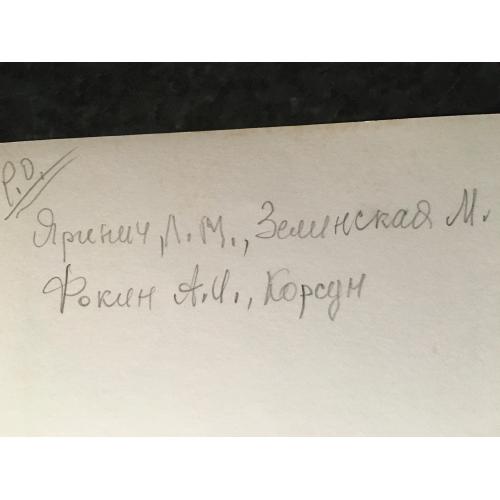 Р.О.
Яринич Л.М., Зелинская М.
Фокин А.И., Корсун